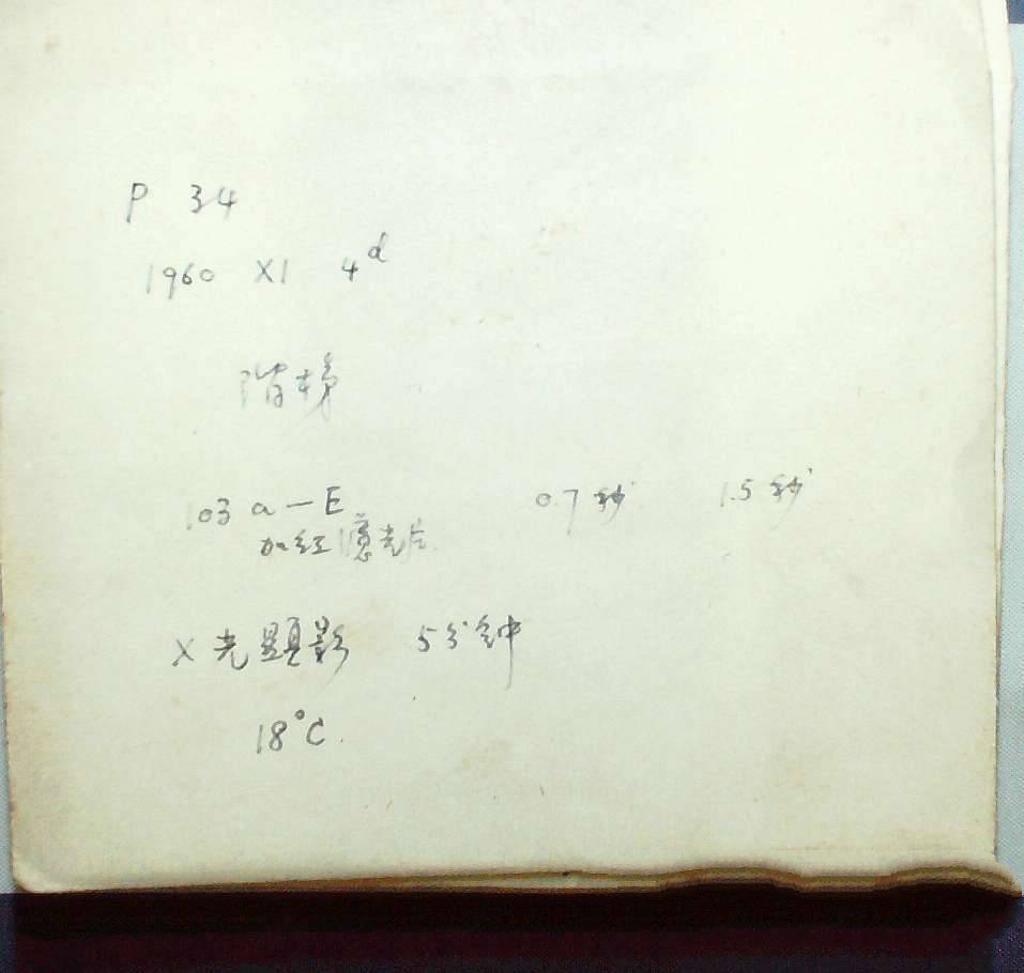 P 34
1960 XI 4d
階梯
103a-E 0.7秒 1.5秒
加红濾光片
X光顕影 5分钟
18°C.